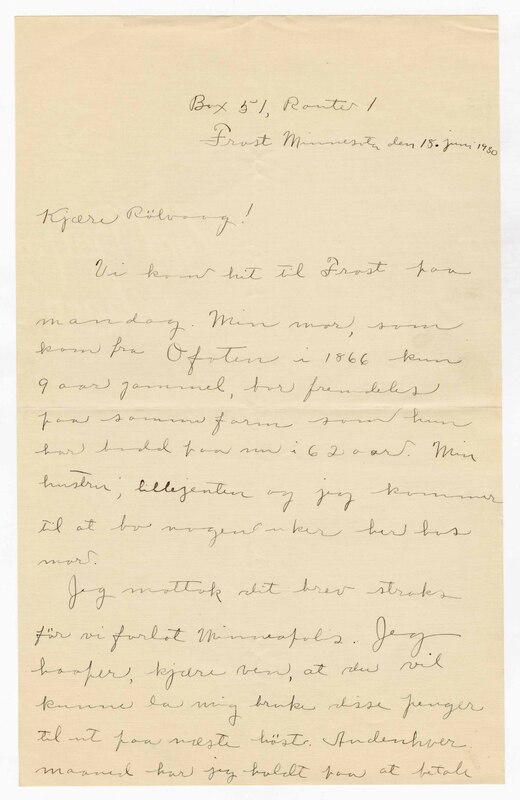 Box 51, Route 1
Frost Minnesota den 18. juni 1930
Kjære Rölvaag!
Vi kom hit til Frost paa
mandag. Min mor, som
kom fra Ofoten i 1866 kun
9 aar gammel, bor fremdeles
paa samme farm som hun
har bodd paa nu i 62 aar. Min
hustru, lillejenten og jeg kommer
til at bo nogen uker her hos
mor.
Jeg mottok dit brev straks
før vi forlot Minneapolis. Jeg
haaper, kjære ven, at du vil
kunne la mig bruke disse penger
til ut paa næste höst. Andenhver
maaned har jeg holdt paa at betale